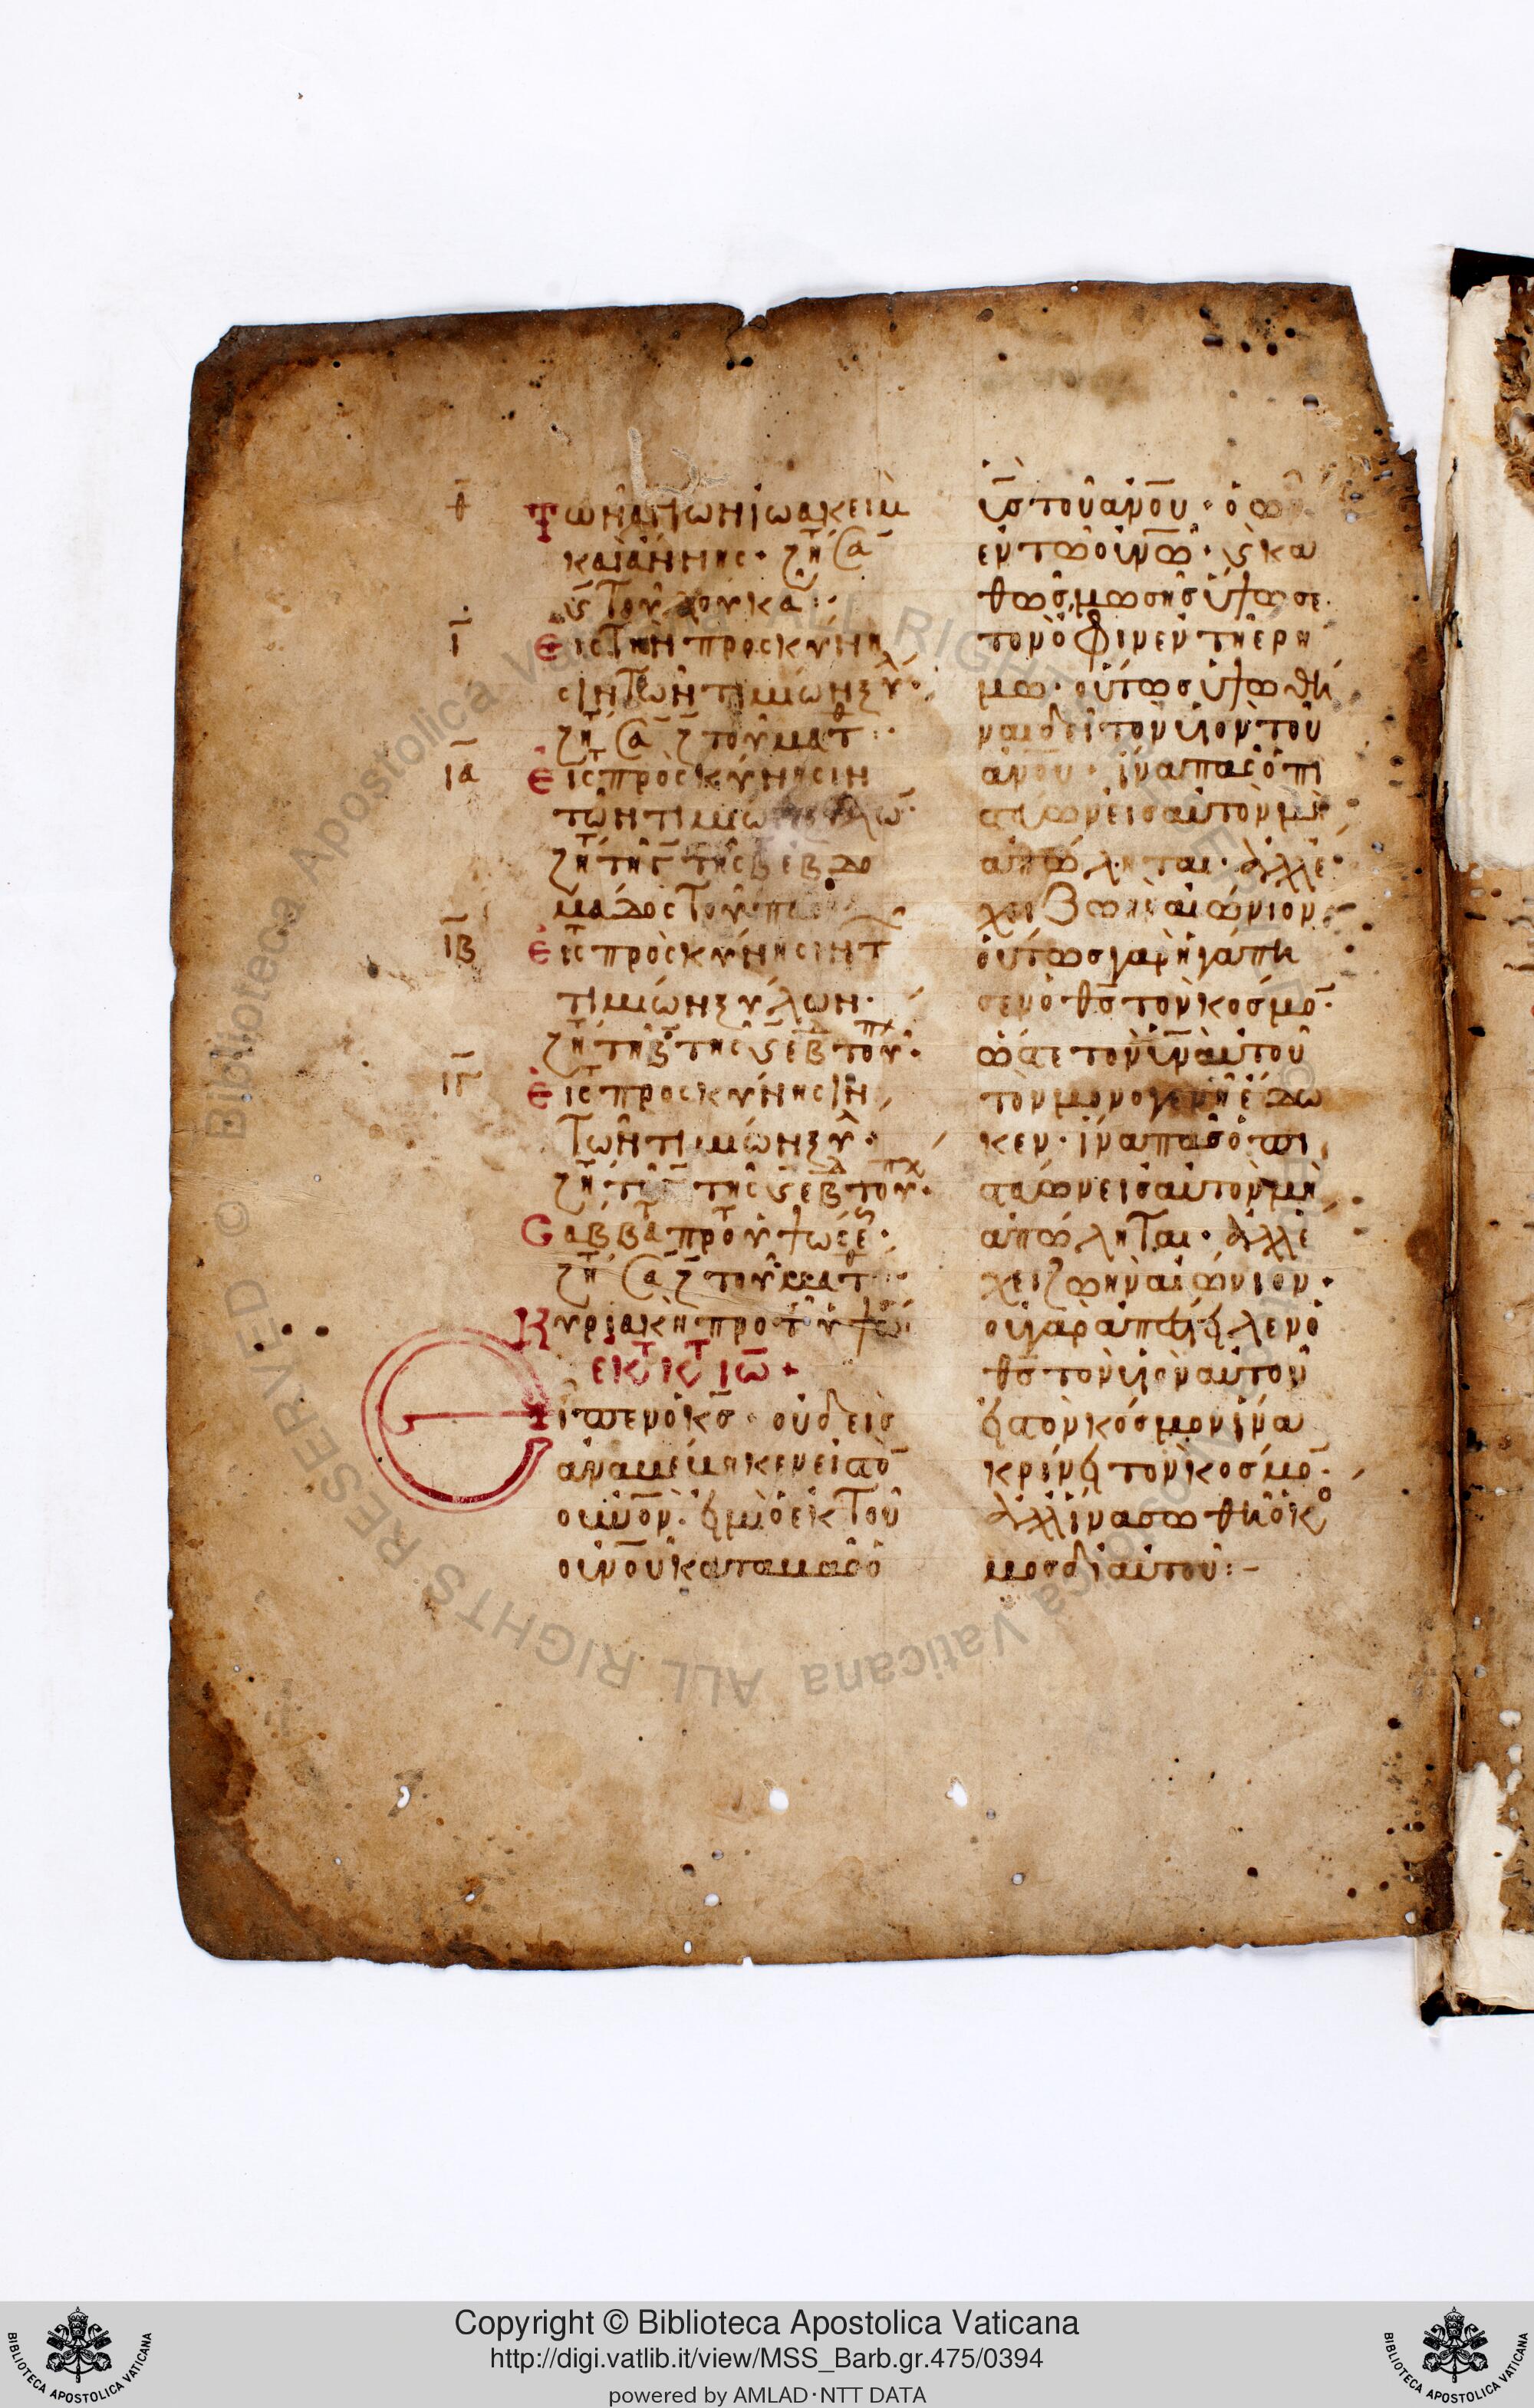 θ̄ Τῶν ἁγίων ἰωακεὶμ
καὶ ἄννης· ζητ σα
τοῦ λουκᾶ:
ῑ Εἰς τὴν προσκύνη
σιν τῶν τιμίων ξυλ·
ζητ σα ζ τοῦ ματθ:
ια Εἰς τ προσκύνησιν
τῶν τιμίων ξυλω·
ζητ τῆ γ τῆς εβδο
μάδος τοῦ
ιβ Εἰς τ προσκύνησιν τ
τιμίων ξύλων·
ζητ τῆ τῆς ς εβδ τοῦ πχ·
ιγ Εἰς τ προσκύνησιν
τῶν τιμίων ξυ·
ζητ τῆς ς εβδ τοῦ πχ·
Σαββάτ πρὸ τ ὑψώσε·
ζητ σα ζ τοῦ ματθ:
Κυριακὴ πρὸ τ ὑψώ·
εκ τ κτ ιω +
Εἶπεν ὁ κς· οὐδεὶς
ἀναβέβηκεν εἰς τὸ
οὐνον· εἰ μὴ ὁ ἐκ τοῦ
οὐνου καταβὰς ὁ
ὑς τοῦ ἀνου· ὁ ὢν
ἐν τῶ οὐνω· ϗ κα
θὼς μωσῆς ὕψωσε
τὸν ὄφιν ἐν τῆ ἐρή
μω· οὕτως ὑψωθῆ
ναι δεῖ τὸν υἱὸν τοῦ
ἀνου· ἵνα πᾶς ὁ πι
στεύων εἰς αὐτὸν μὴ
ἀπόληται· ἀλλ ἔ
χει ζωὴν αἰώνιον·
οὕτως γὰρ ἠγάπη
σεν ὁ θς τὸν κόσμο·
ὥστε τὸν υν αὐτοῦ
τὸν μονογενῆ ἔδω
κεν· ἵνα πᾶς ὁ πι
στεύων εἰς αὐτὸν μὴ
ἀπώληται· ἀλλ ἔ
χει ζωὴν αἰώνιον·
οὐ γὰρ ἀπέστειλεν ὁ
θς τὸν υἱὸν αὐτοῦ
εἰς τὸν κόσμον ἵνα
κρίνει τὸν κόσμο·
ἀλλ ἵνα σωθῆ ὁ κό
μος δι αὐτοῦ:-
Copyright © Biblioteca Apostolica Vaticana
http://digi.vatlib.it/view/MSS_Barb.gr.475/0394
powered by AMLAD·NTT DATA
BIBLIOTECA APOSTOLICA VATICANA
BIBLIOTECA APOSTOLICA VATICANA